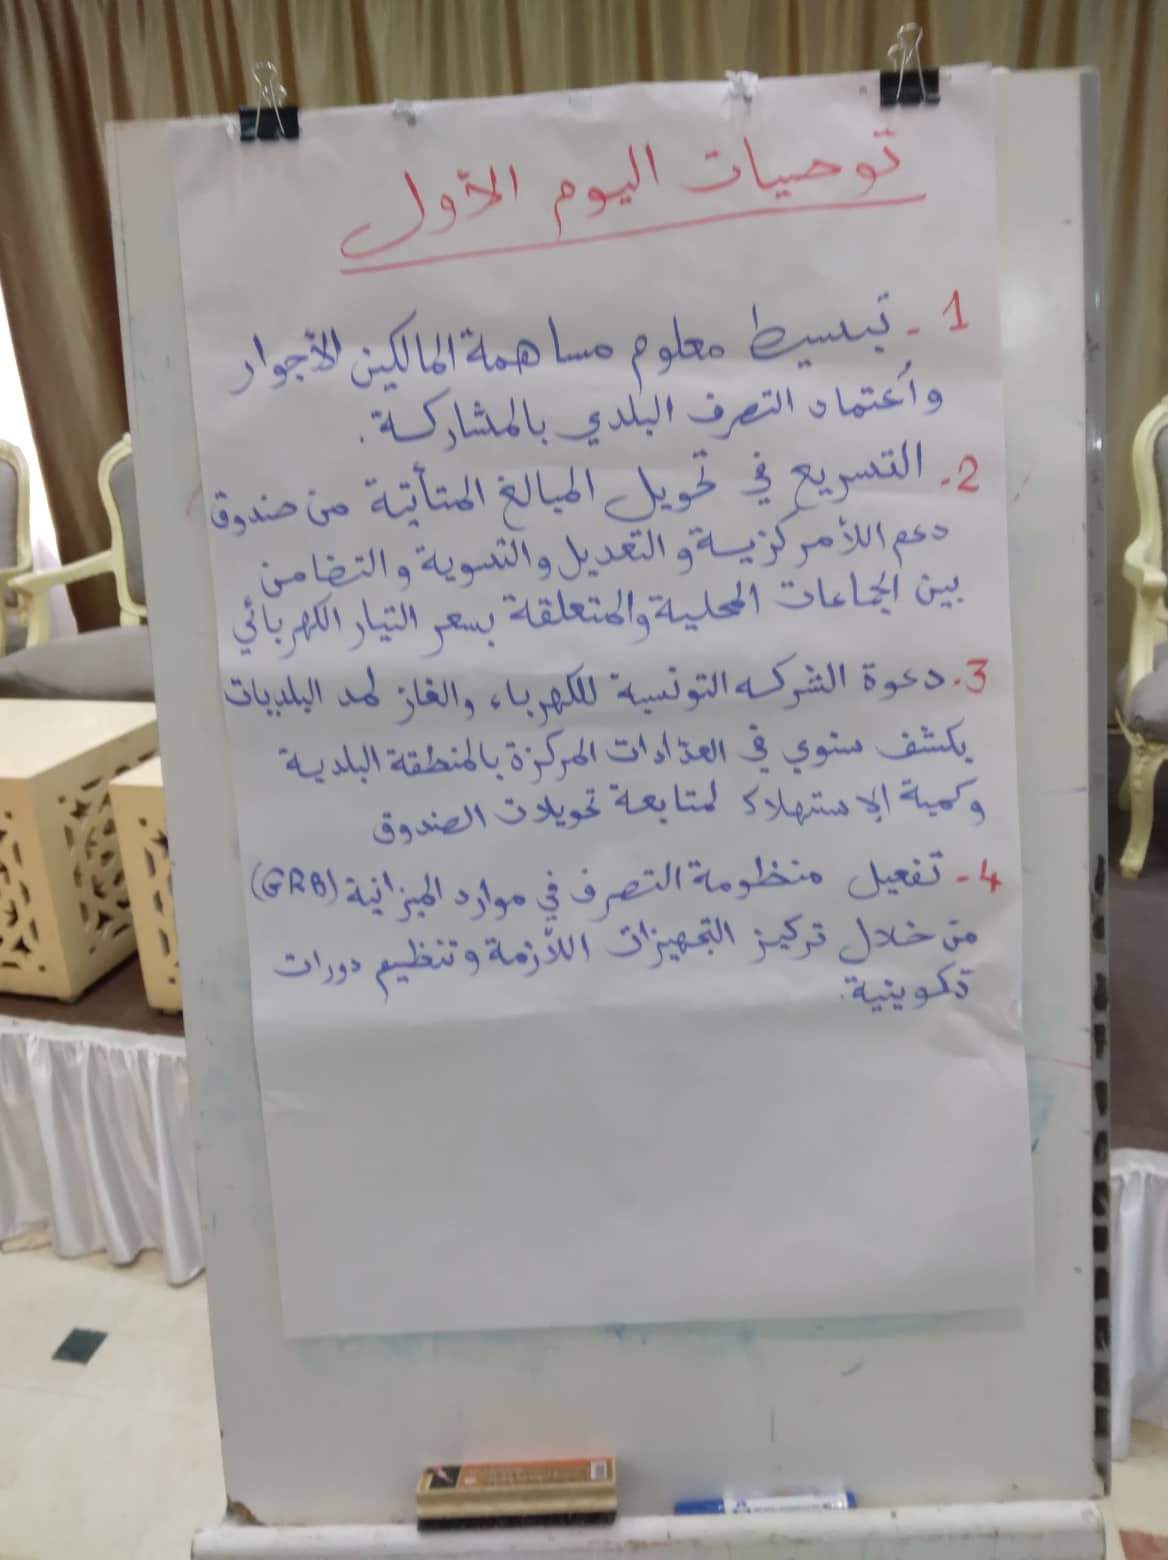 توصيات اليوم الأول
1 - تبسيط معلوم مساهمة المالكين الأجوار
واُعتماد التصرف البلدي بالمشاركة.
2- التسريع في تحويل المبالغ المتأتية من صندوق
دعم اللأمركزية والتعديل والتسوية والتضامن
بين الجماعات المحلية والمتعلقة بسعر التيار الكهربائي
3- دعوة الشركة التونسية للكهرباء والغاز لمد البلديات
بكشف سنوي في العدادات المركزة بالمنطقة البلدية
وكمية الإستهلاك لمتابعة تحويلات الصندوق
4- تفعيل منظومة التصرف في موارد الميزانية (GRB)
من خلال تركيز التجهيزات اللأزمة وتنظيم دورات
تكوينية.